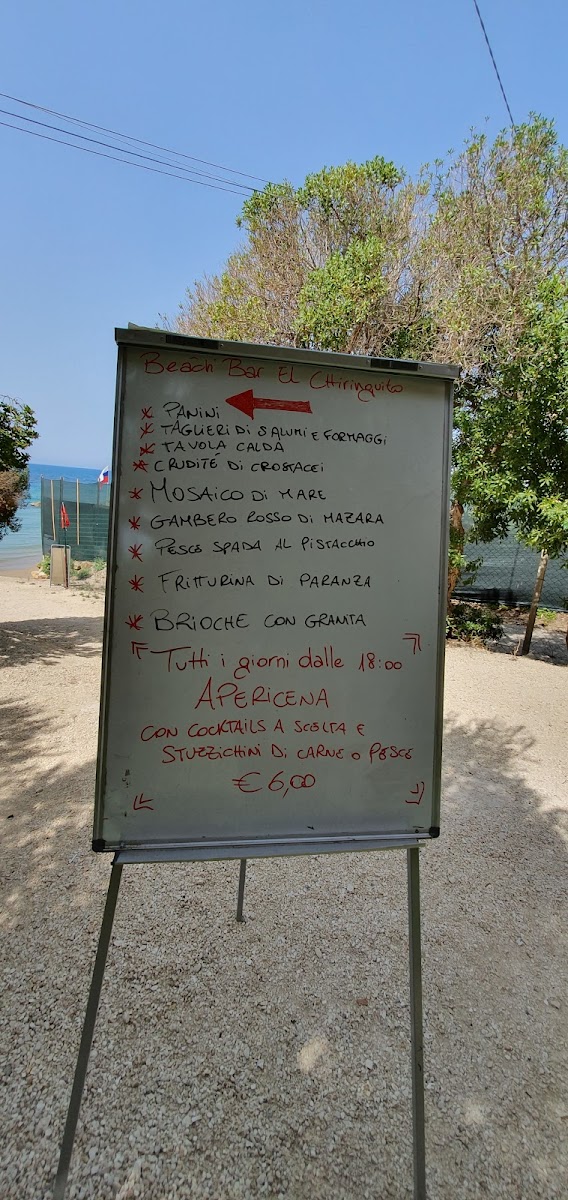 Beach Bar El Chiringuito
* PANINI
* TAGLIERI DI SALUMI E FORMAGGI
* TAVOLA CALDA
* CRUDITÉ DI CROSTACEI
* MOSAICO DI MARE
* GAMBERO ROSSO DI MAZARA
* PESCE SPADA AL PISTACCHIO
* FRITTURINA DI PARANZA
* BRIOCHE CON GRANITA
Tutti i giorni dalle 18:00
APERICENA
CON COCKTAILS A SCELTA E
STUZZICHINI DI CARNE O PESCE
€ 6,00